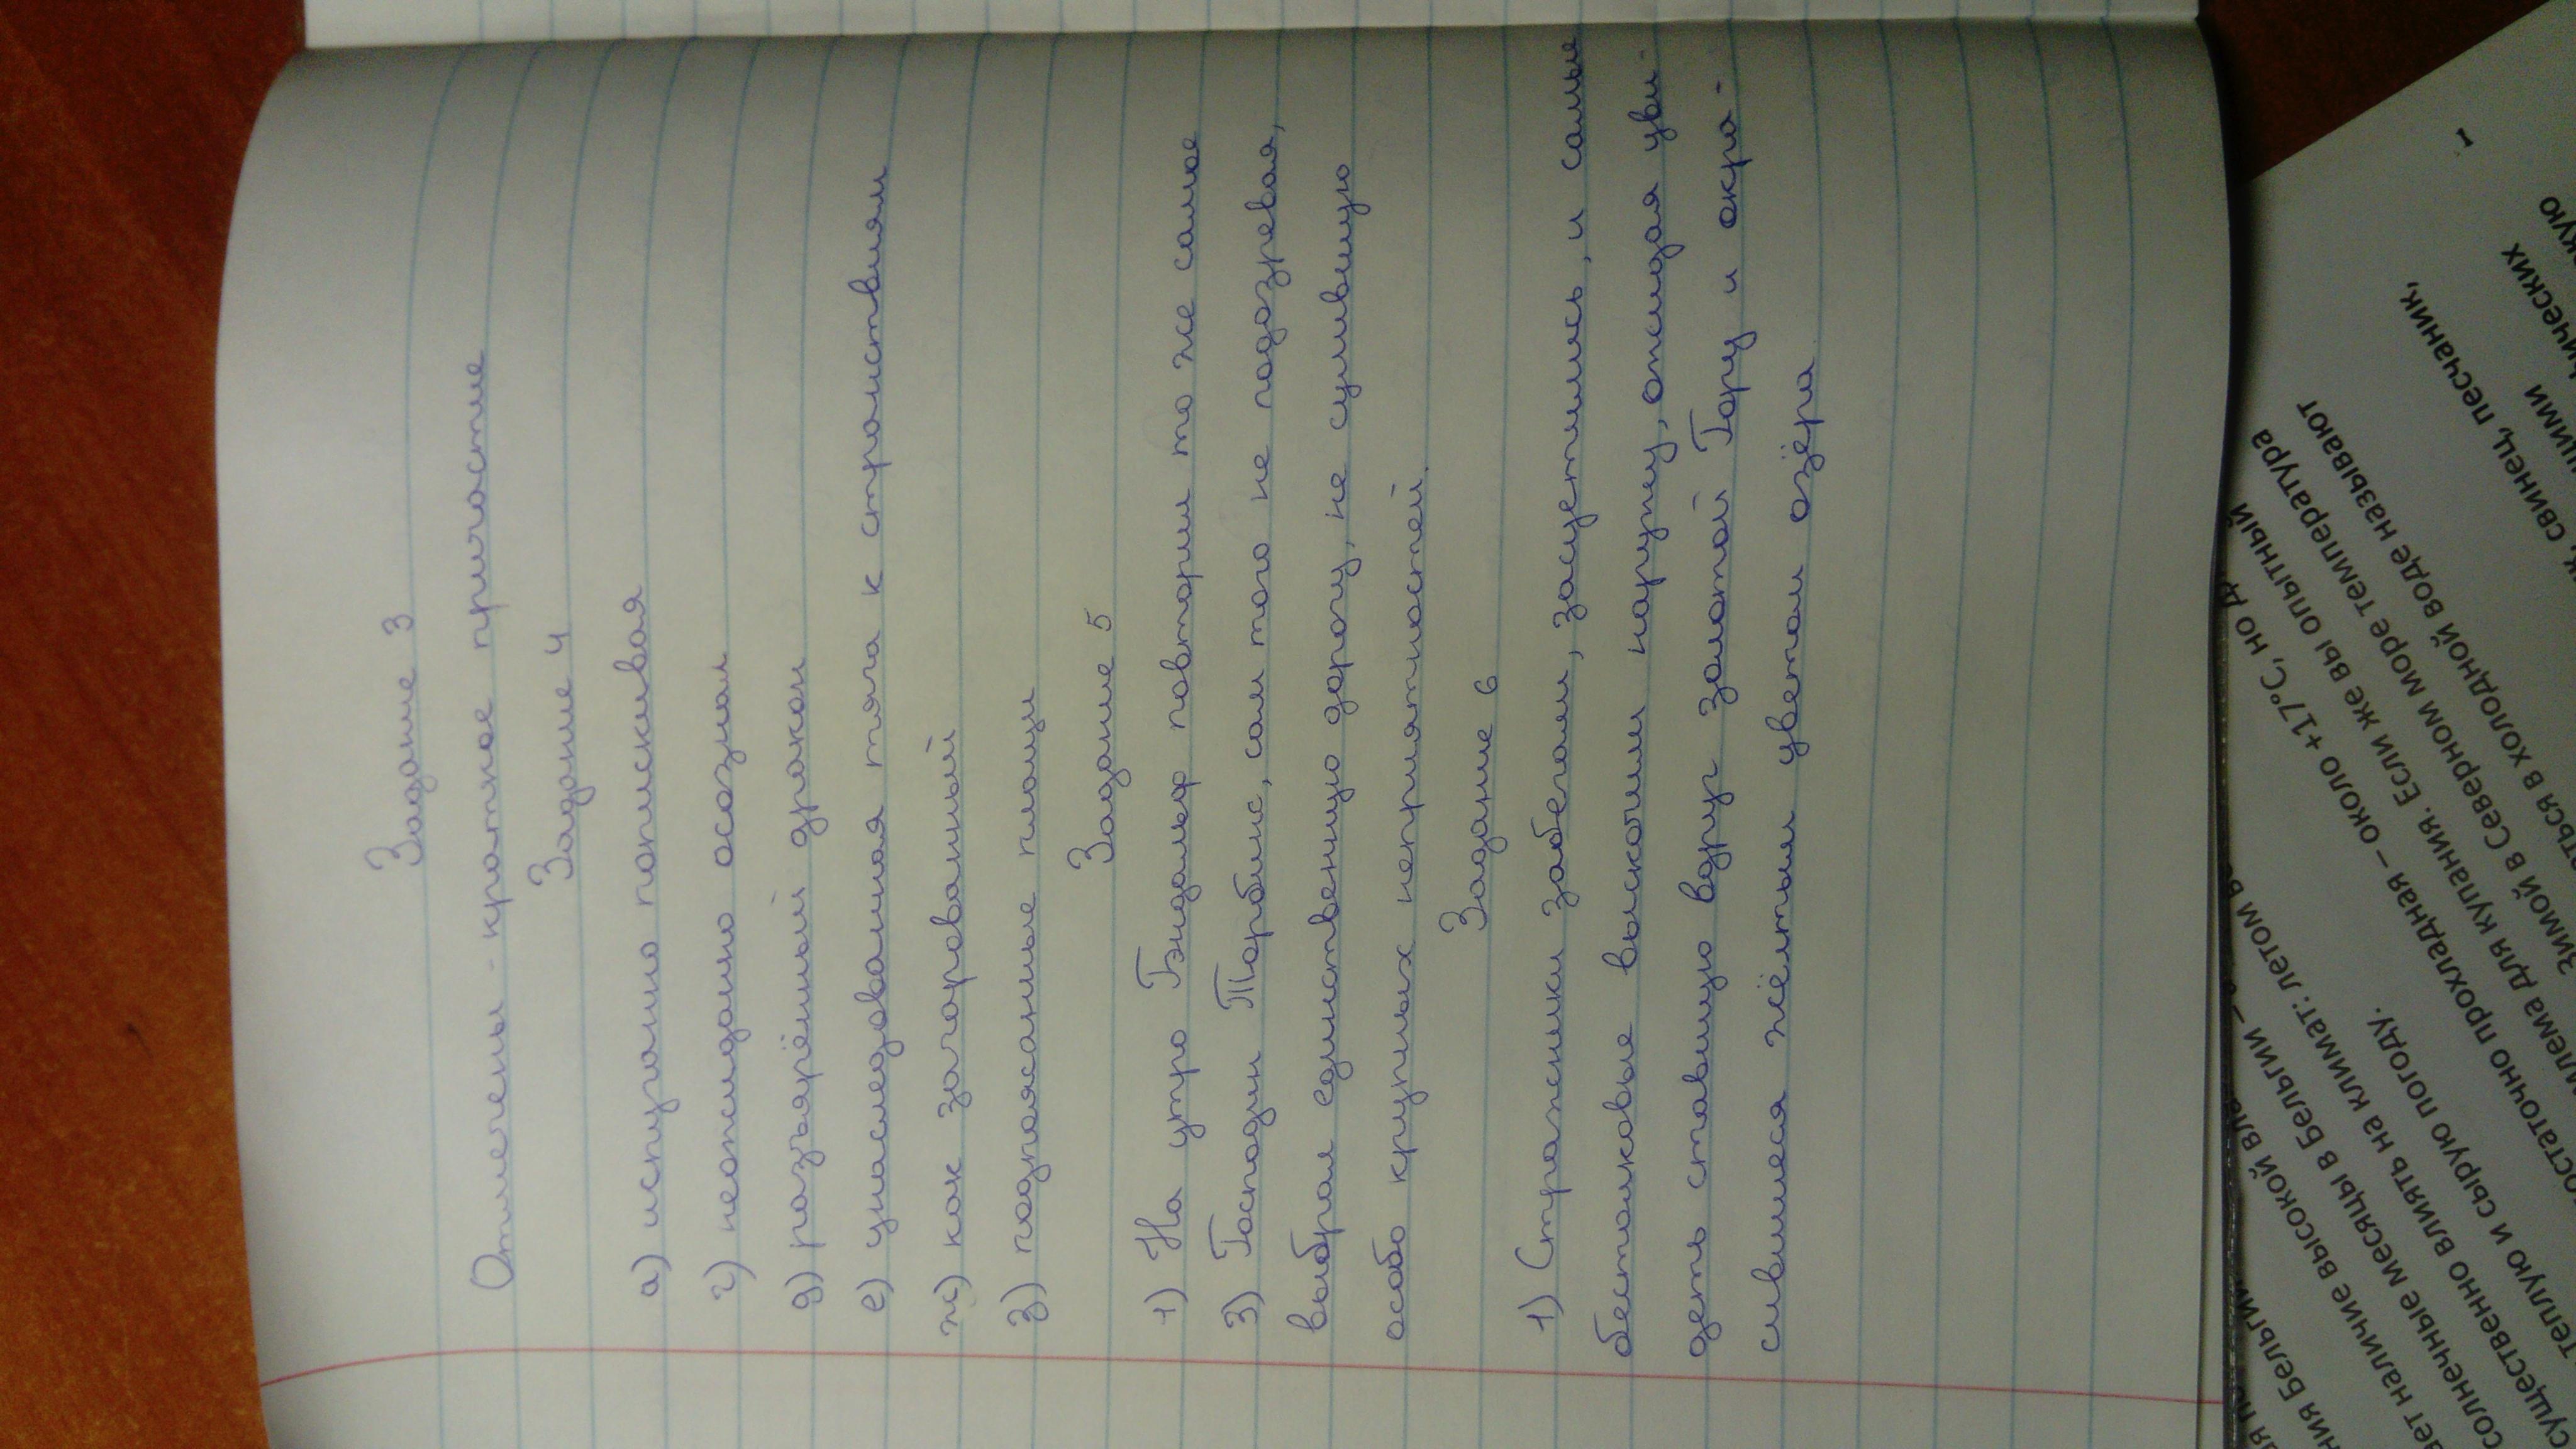 Задание 3
Отмечены - краткое причастие
Задание 4
а) испуганно попискивая
г) неожиданно осознал
д) разъярённый дракон
е) унаследованная тяга к странствиям
ж) как заговорённый
з) подпоясанные плащи
Задание 5
1) На утро Гэндальф повторил то же самое
3) Господин Торбинс, сам того не подозревая,
выбрал единственную дорогу, не сулившую
особо крупных неприятностей.
Задание 6
1) Стражники забегали, засуетились, и самые
бестолковые выскочили наружу, ожидая уви-
деть ставшую вдруг золотой Гору и окра-
сившиеся жёлтым цветом озёра.
1
кую
ических
щими
свинец, песчаник,
ться в холодной воде называют
зимой в Северном море температура
лема для купания. Если же вы опытный
остаточно прохладная – около +17°С, но д
теплую и сырую погоду.
существенно влиять на климат: летом
солнечные месяцы в Бельгии –
ет наличие высокой вла
ния Бельгии